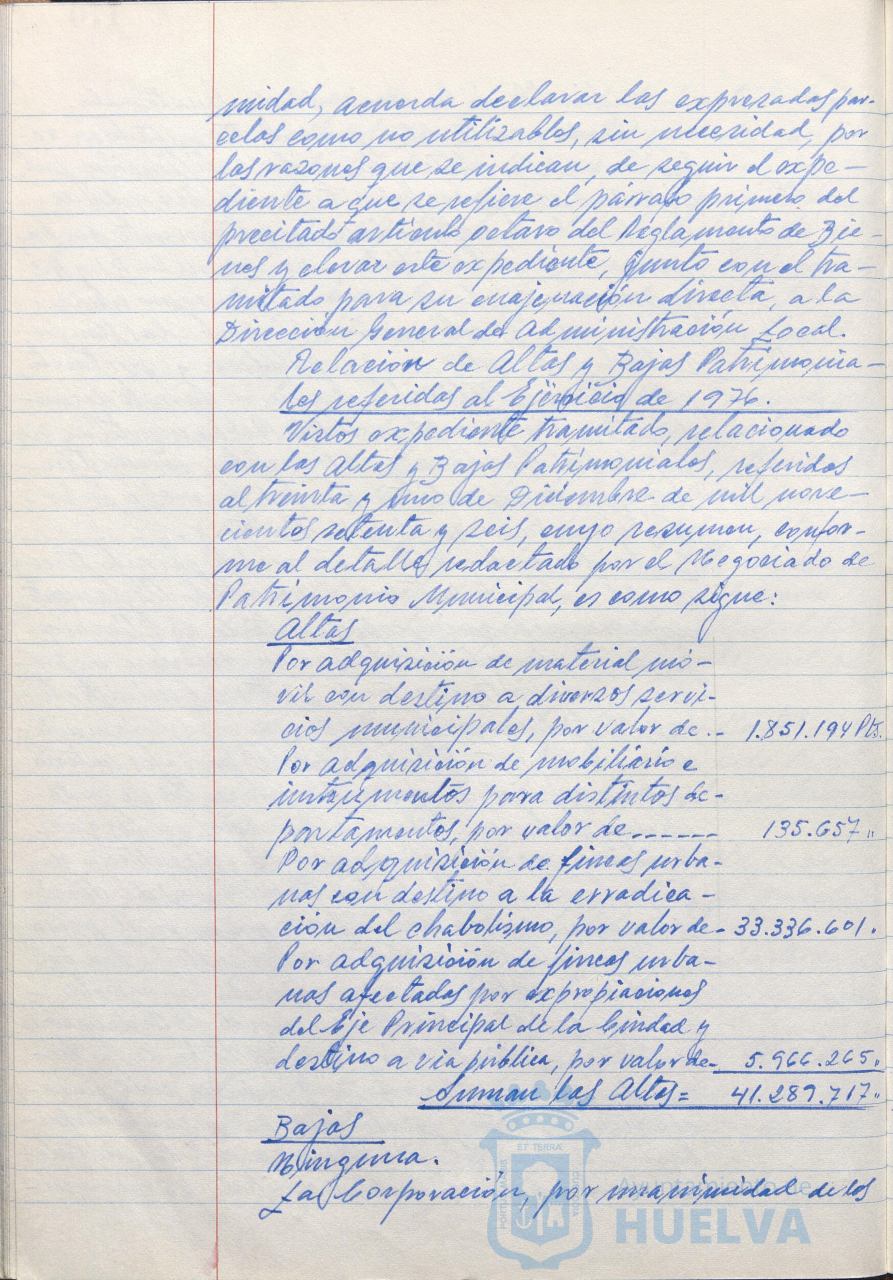 nidad, acuerda declarar las expresadas par-
celas como no utilizables, sin necesidad, por
las razones que se indican, de seguir el expe-
diente a que se refiere el párrafo primero del
precitado artículo octavo del Reglamento de Bie-
nes y elevar este expediente, junto con el tra-
mitado para su enajenación directa, a la
Dirección General de Administración Local.
Relación de Altas y Bajas Patrimonia-
les referidas al Ejercicio de 1976.
Vistos expediente tramitado, relacionado
con las Altas y Bajas Patrimoniales, referidas
al treinta y uno de Diciembre de mil nove-
cientos setenta y seis, cuyo resumen, confor-
me al detalle redactado por el Negociado de
Patrimonio Municipal, es como sigue:
Altas
Por adquisición de material mó-
vil con destino a diversos servi-
cios municipales, por valor de.- 1.851.194 Pts.
Por adquisición de mobiliario e
instrumentos para distintos de-
partamentos, por valor de------ 135.657 "
Por adquisición de fincas urba-
nas con destino a la erradica-
ción del chabolismo, por valor de- 33.336.601.
Por adquisición de fincas urba-
nas afectadas por expropiaciones
del Eje Principal de la Ciudad y
destino a vía pública, por valor de- 5.966.265 "
Suman las Altas= 41.289.717 "
Bajas
Ninguna.
La Corporación, por unanimidad de los
ET TERRA
PORTUS MARIS
CUSTODIA
Ayuntamiento de
HUELVA